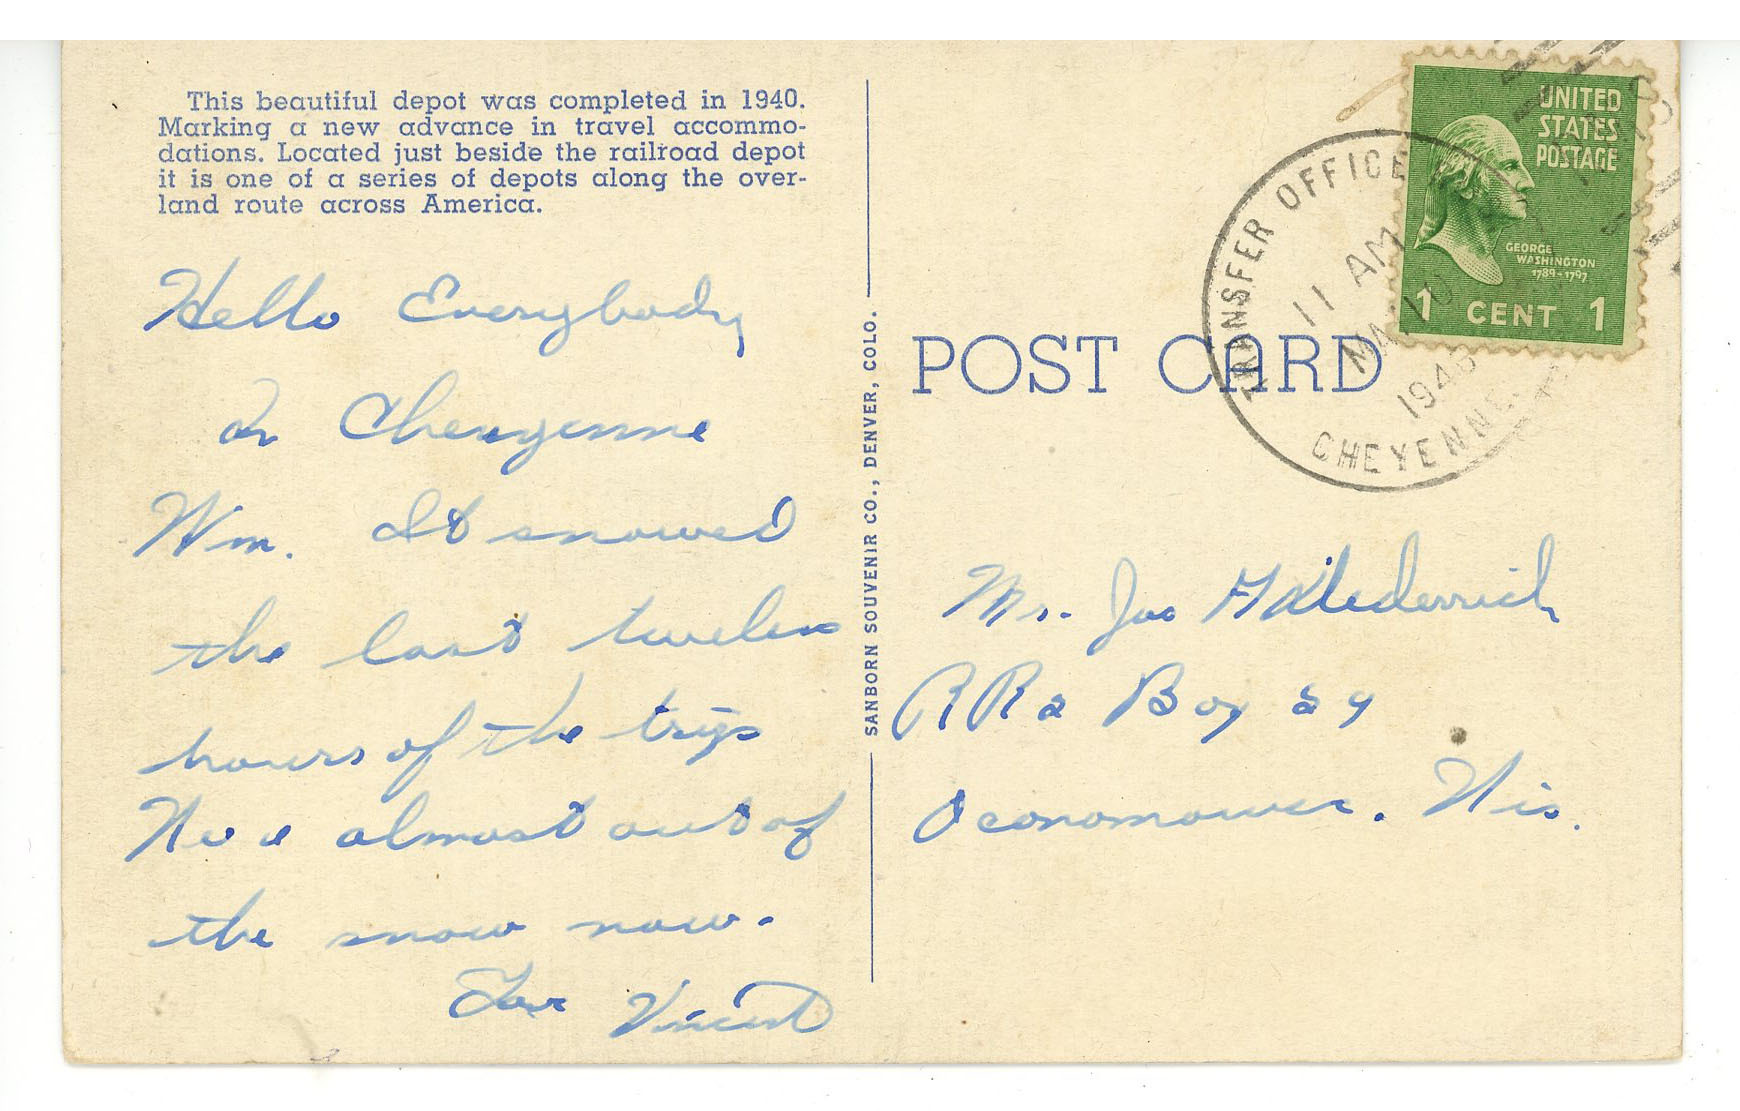 This beautiful depot was completed in 1940.
Marking a new advance in travel accommo-
dations. Located just beside the railroad depot
it is one of a series of depots along the over-
land route across America.
Hello Everybody
In Cheyenne
Wm. It snowed
the last twelve
hours of the trip
We almost out of
the snow now.
Vincent
SANBORN SOUVENIR CO., DENVER, COLO.
POST CARD
TRANSFER OFFICE
11 AM
10
CHEYENNE,
UNITED
STATES
POSTAGE
GEORGE
WASHINGTON
1789-1797
1 CENT 1
Mr. Jos
RR2 Box
Oconomowoc. Wis.